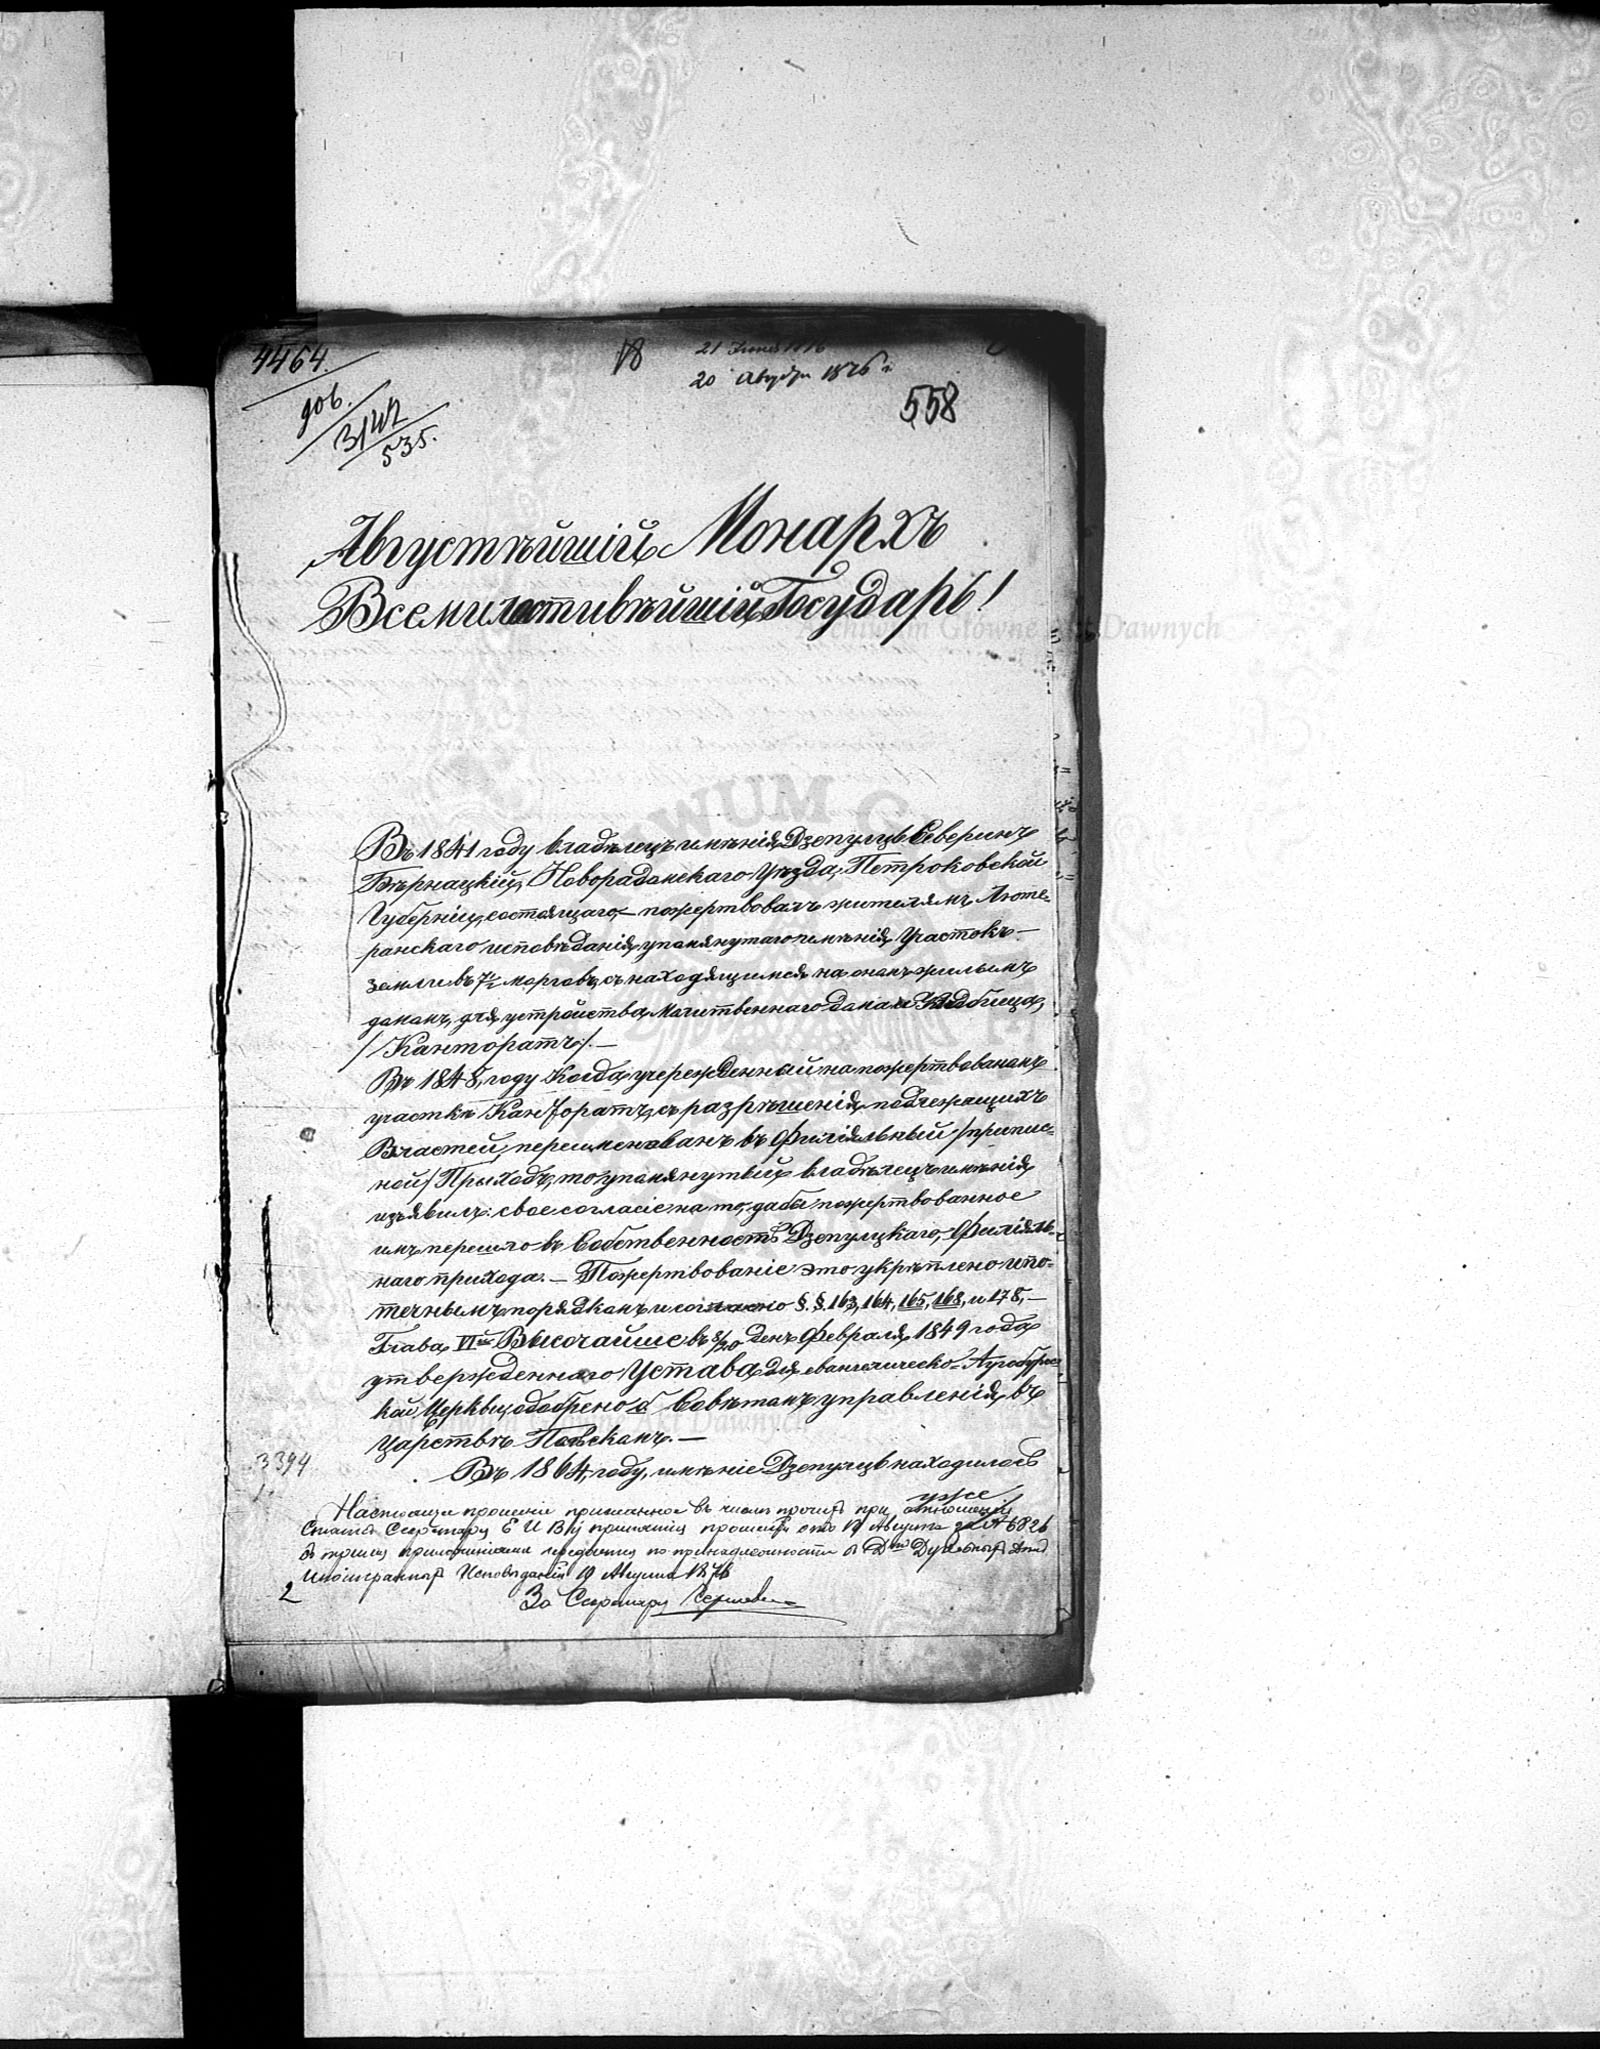 4464.
18
20 Августа 1876 г.
дов.
3142
535.
558
Августѣйшій Монархъ
Всемилостивѣйшій Государь!
Въ 1841 году владѣлецъ имѣнія Дзепулць Северинъ
Бѣрнацкій,Иоворадомскаго Уѣзда, Петроковской
Губерніи, состоящаго, — пожертвовалъ жителямъ Люте-
ранскаго исповѣданія упомянутаго имѣнія, Участокъ —
земли въ 7½ моргов, съ находящимся на онамъ жилымъ
домамъ, для устройства Молитвеннаго Дома и Кладбища,
/Канторатъ/. —
Въ 1848, году Когда учережденный на пожертвованамъ
участкѣ Канторатъ, съ разрѣшенія подлежащихъ
Властей, переименованъ въ Филіяльный /припис-
ной/ Прыходъ, то упомянутый владѣлецъ имѣнія
изъявилъ: свое согласіе на то, дабы пожертвованное
имъ перешло въ Собственность Дзепулцкаго, Филіяль-
наго прихода. — Пожертвованіе это укрѣплено ипо-
течнымъ порядкамъ и согласно §.§. 163, 164, 165, 168, и 178, —
Глава VI Высочайше въ 8/20 день Февраля, 1849 года
утвержденнаго Устава для евангелическо-Аугсбургс-
кой Церкви, одобрено б. Совѣтамъ управленія, въ
Царствѣ Польскамъ. —
3394
Въ 1864, году, имѣніе Дзепулць находилось
уже
Настоящее прошеніе присланное въ числѣ прочихъ при отношеніи
Статсъ Секретаря Е И В у принятія прошеній отъ 19 Августа за № 6826
съ тремя приложеніями передается по принадлежности въ Д Духовныхъ Дѣлъ
Иностранныхъ Исповѣданій 19 Августа 1876
2
За Секретаря
Archiwum Główne Akt Dawnych